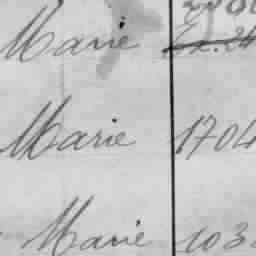 Marie
Marie 1704
Marie 103